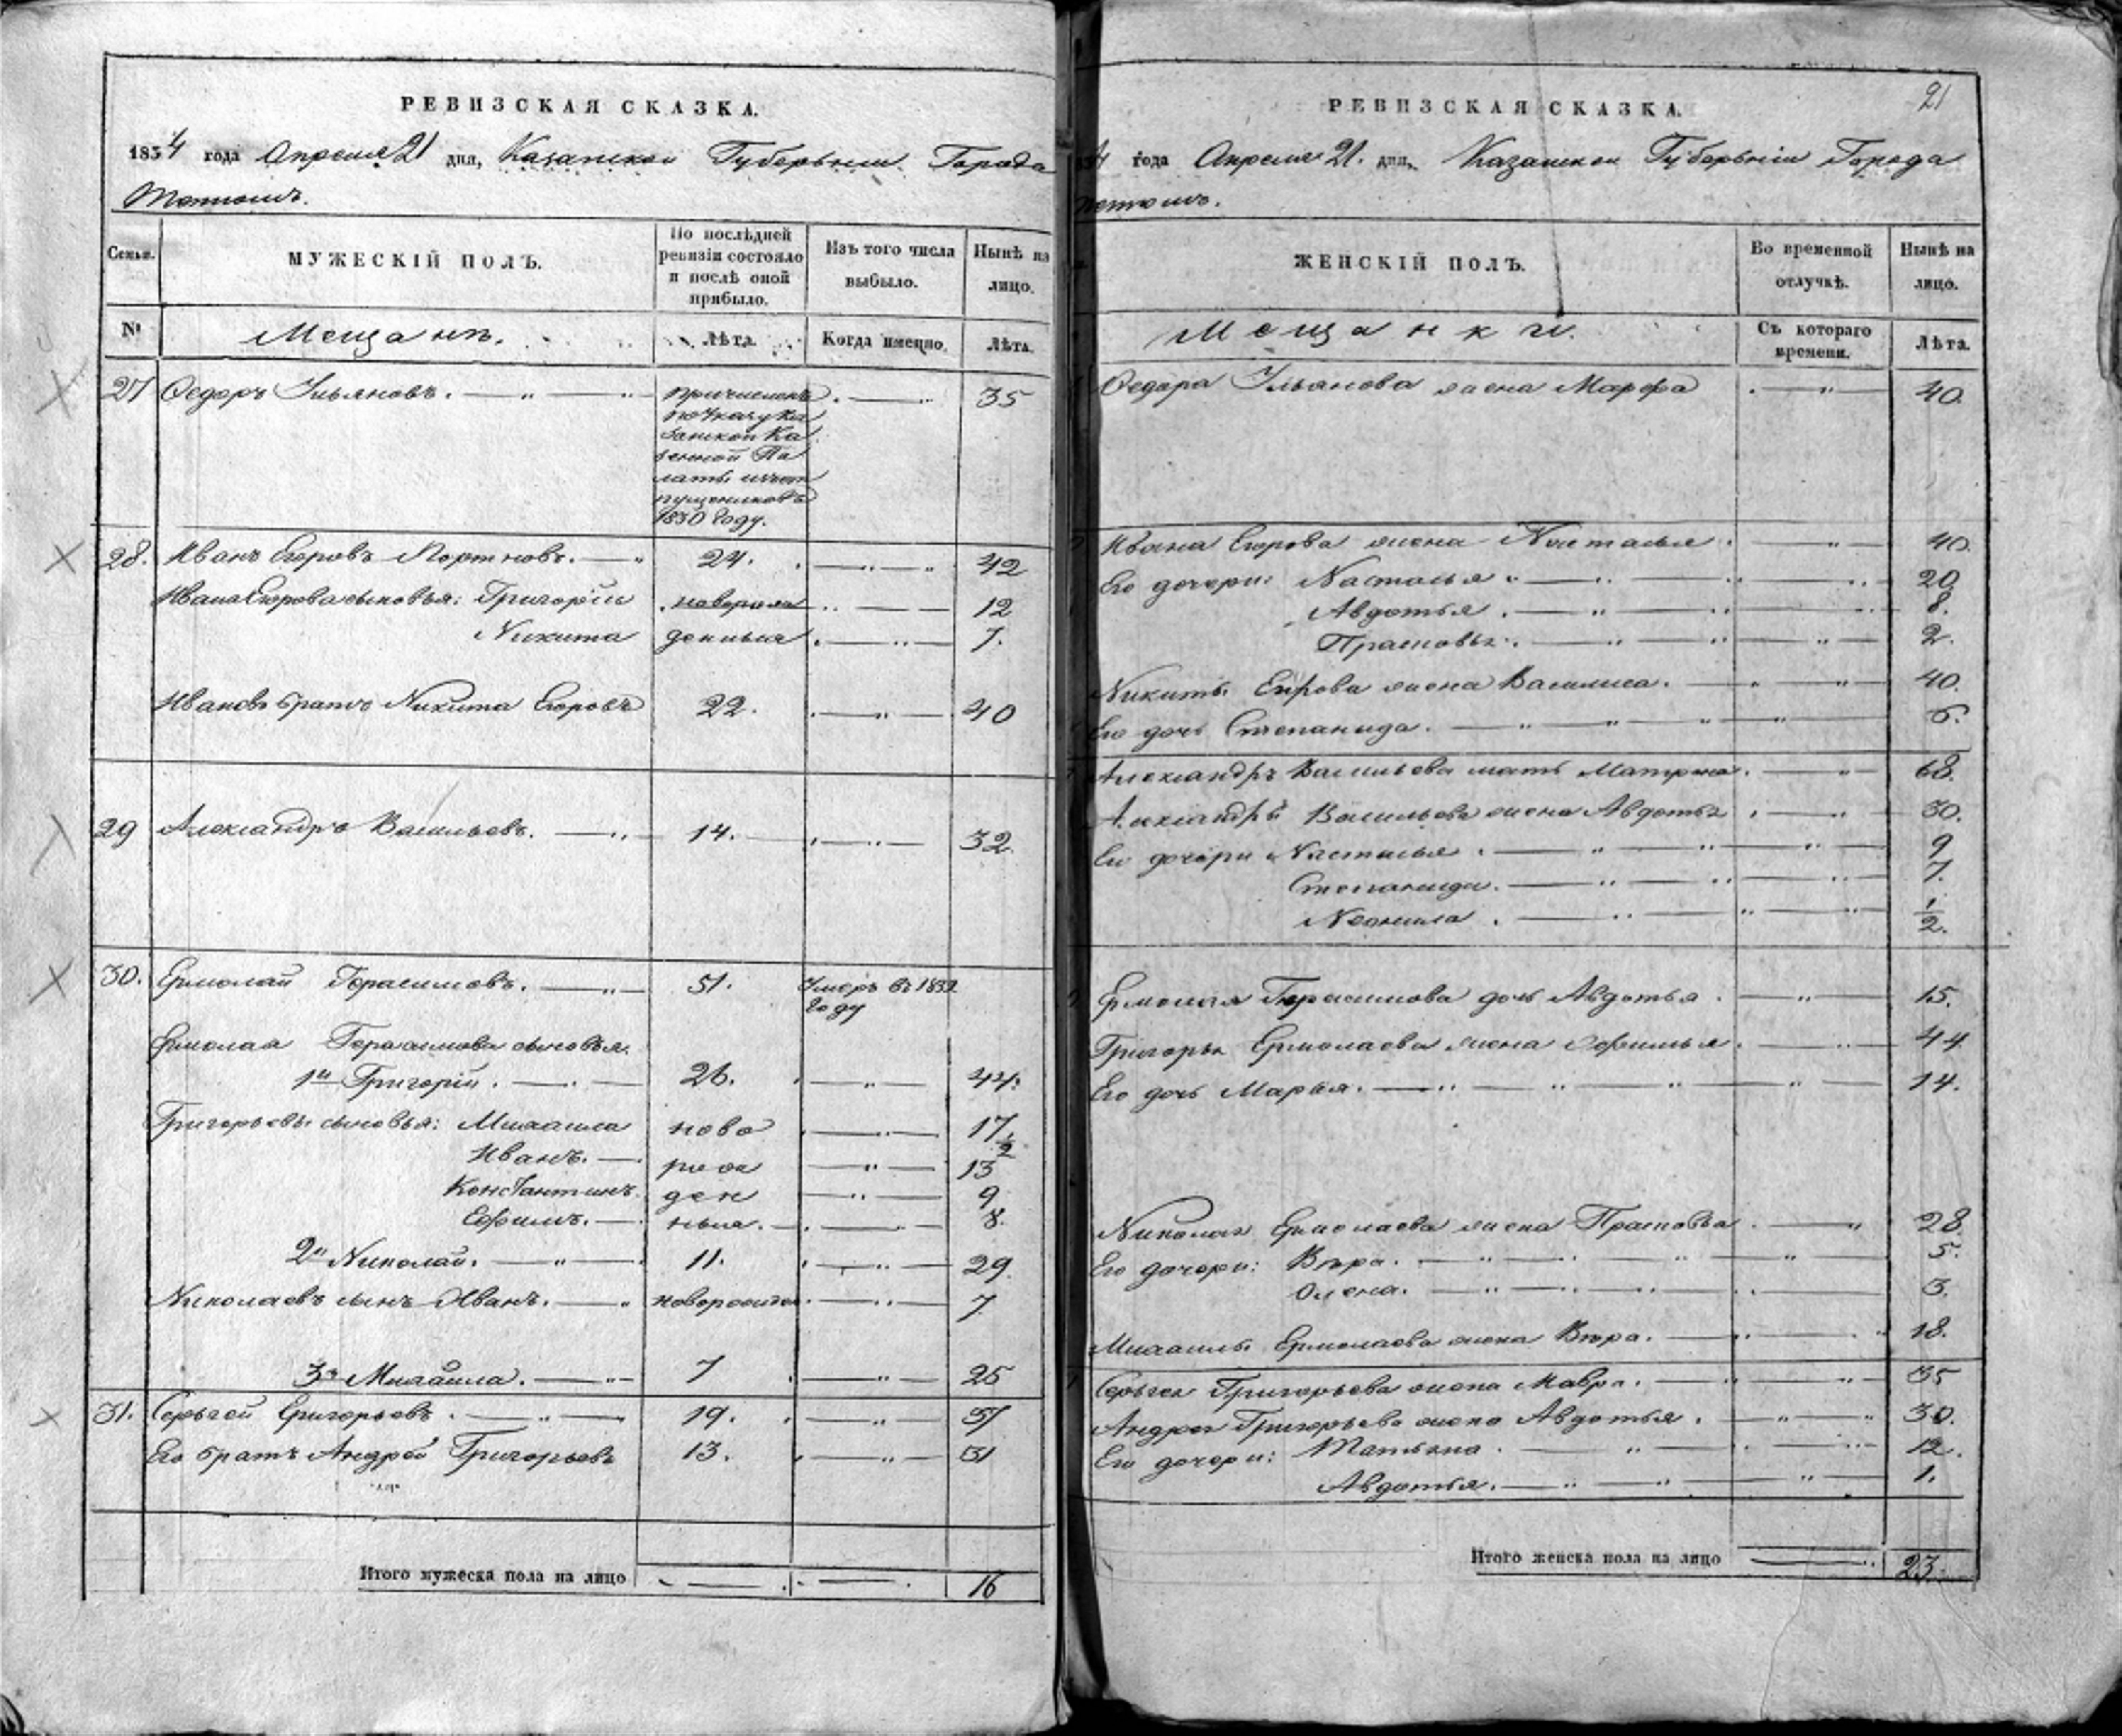 РЕВИЗСКАЯ СКАЗКА.
1834 года Апреля 21 дня, Казанской Губернии Города
Тетюшъ.
Семьи. МУЖЕСКІЙ ПОЛЪ. По послѣдней ревизіи состояло и послѣ оной прибыло. Изъ того числа выбыло. Нынѣ на лицо.
№ Мещанъ. Лѣта. Когда именно. Лѣта.
27 Федоръ Ильяновъ. причисленъ 35
по Указу Ка
занской Ка
зенной Па
латы изъ от
пущениковъ
1830 году.
28. Иванъ Егоровъ Портновъ. 24. 42
Ивана Егорова сыновья: Григорій новорож 12
Никита денныя 7.
Ивановъ братъ Никита Егоровъ 22. 40
29 Александръ Васильевъ. 14. 32
30. Ермолай Герасимовъ. 51. Умеръ въ 1832
году
Ермолая Герасимова сыновья.
1й Григорій. 26. 44.
Григорьевы сыновья: Михаила ново 17 1/2
Иванъ. рож 13
Константинъ. ден 9
Ефимъ. ныя. 8.
2й Николай. 11. 29.
Николаевъ сынъ Иванъ. новорожден 7
3й Михайла. 7 25
31. Сергей Григорьевъ. 19. 37
Его братъ Андрей Григорьевъ 13. 31
Итого мужеска пола на лицо 16
21
РЕВИЗСКАЯ СКАЗКА.
года Апреля 21. дня, Казанской Губерніи Города
Тетюшъ.
ЖЕНСКІЙ ПОЛЪ. Во временной отлучкѣ. Нынѣ на лицо.
Мещанки. Съ котораго времени. Лѣта.
Федора Ильянова жена Марфа 40.
Ивана Егорова жена Настасья 40.
Его дочери: Настасья 20
Авдотья. 8.
Прасковья. 2.
Никиты Егорова жена Василиса. 40.
Его дочь Степанида. 6.
Александръ Васильева мать Матрена. 68.
Александръ Васильева жена Авдотья 30.
Его дочери Настасья. 9
Степанида. 7.
Неонила. 1/2.
Ермолая Герасимова дочь Авдотья. 15.
Григорья Ермолаева жена Афимья. 44
Его дочь Марья. 14.
Николая Ермолаева жена Прасковья 28.
Его дочери: Вѣра. 5.
Олена. 3.
Михаилы Ермолаева жена Вѣра. 18.
Сергея Григорьева жена Мавра. 35
Андрея Григорьева жена Авдотья. 30.
Его дочери: Татьяна. 12.
Авдотья. 1.
Итого женска пола на лицо 23.